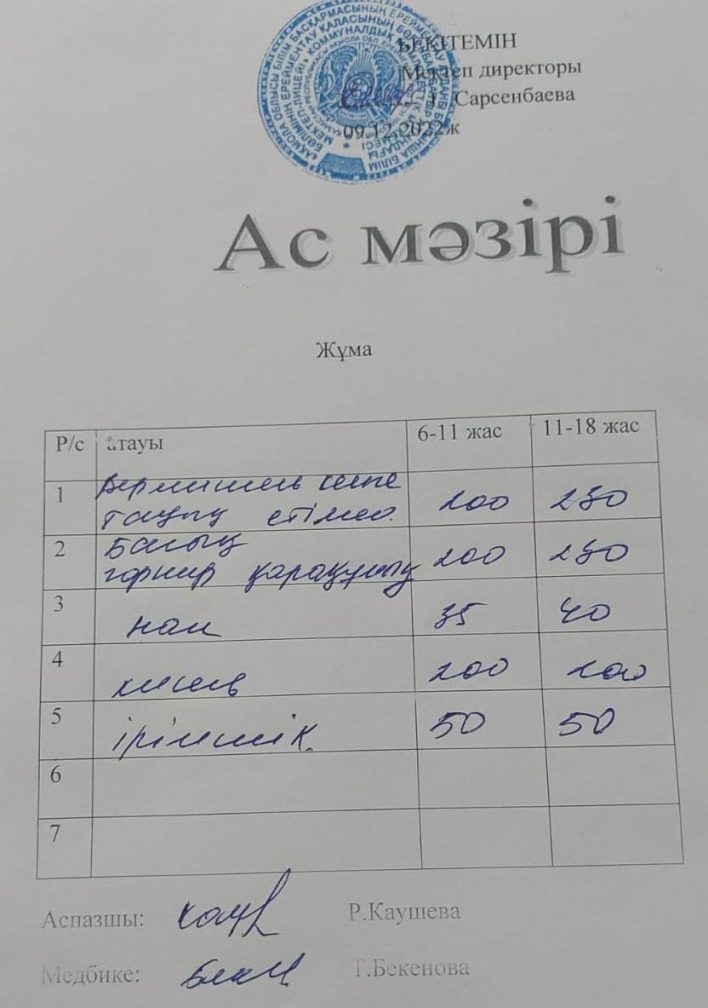 БЕКІТЕМІН
Мектеп директоры
Сарсенбаева
09.12.2022ж
Ас мәзірі
Жұма
Р/с атауы 6-11 жас 11-18 жас
1 Вермишель кеспе
тауық етімен. 200 250
2 Балық
гарнир қарақұмық 200 250
3 нан 35 40
4 кисель 200 200
5 ірімшік. 50 50
6
7
Аспазшы: Р.Каушева
Медбике: Т.Бекенова